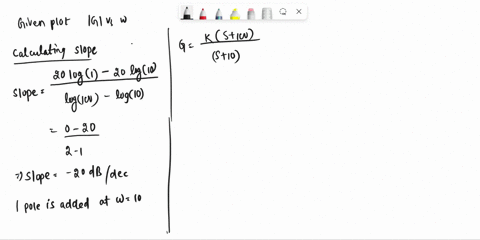 Given plot |G| vs w
Calculating slope
Slope = 20 log(1) - 20 log(10)
log(100) - log(10)
= 0 - 20
2 - 1
⇒ Slope = -20 dB/dec
1 pole is added at w = 10
G = K (S+100)
(S+10)